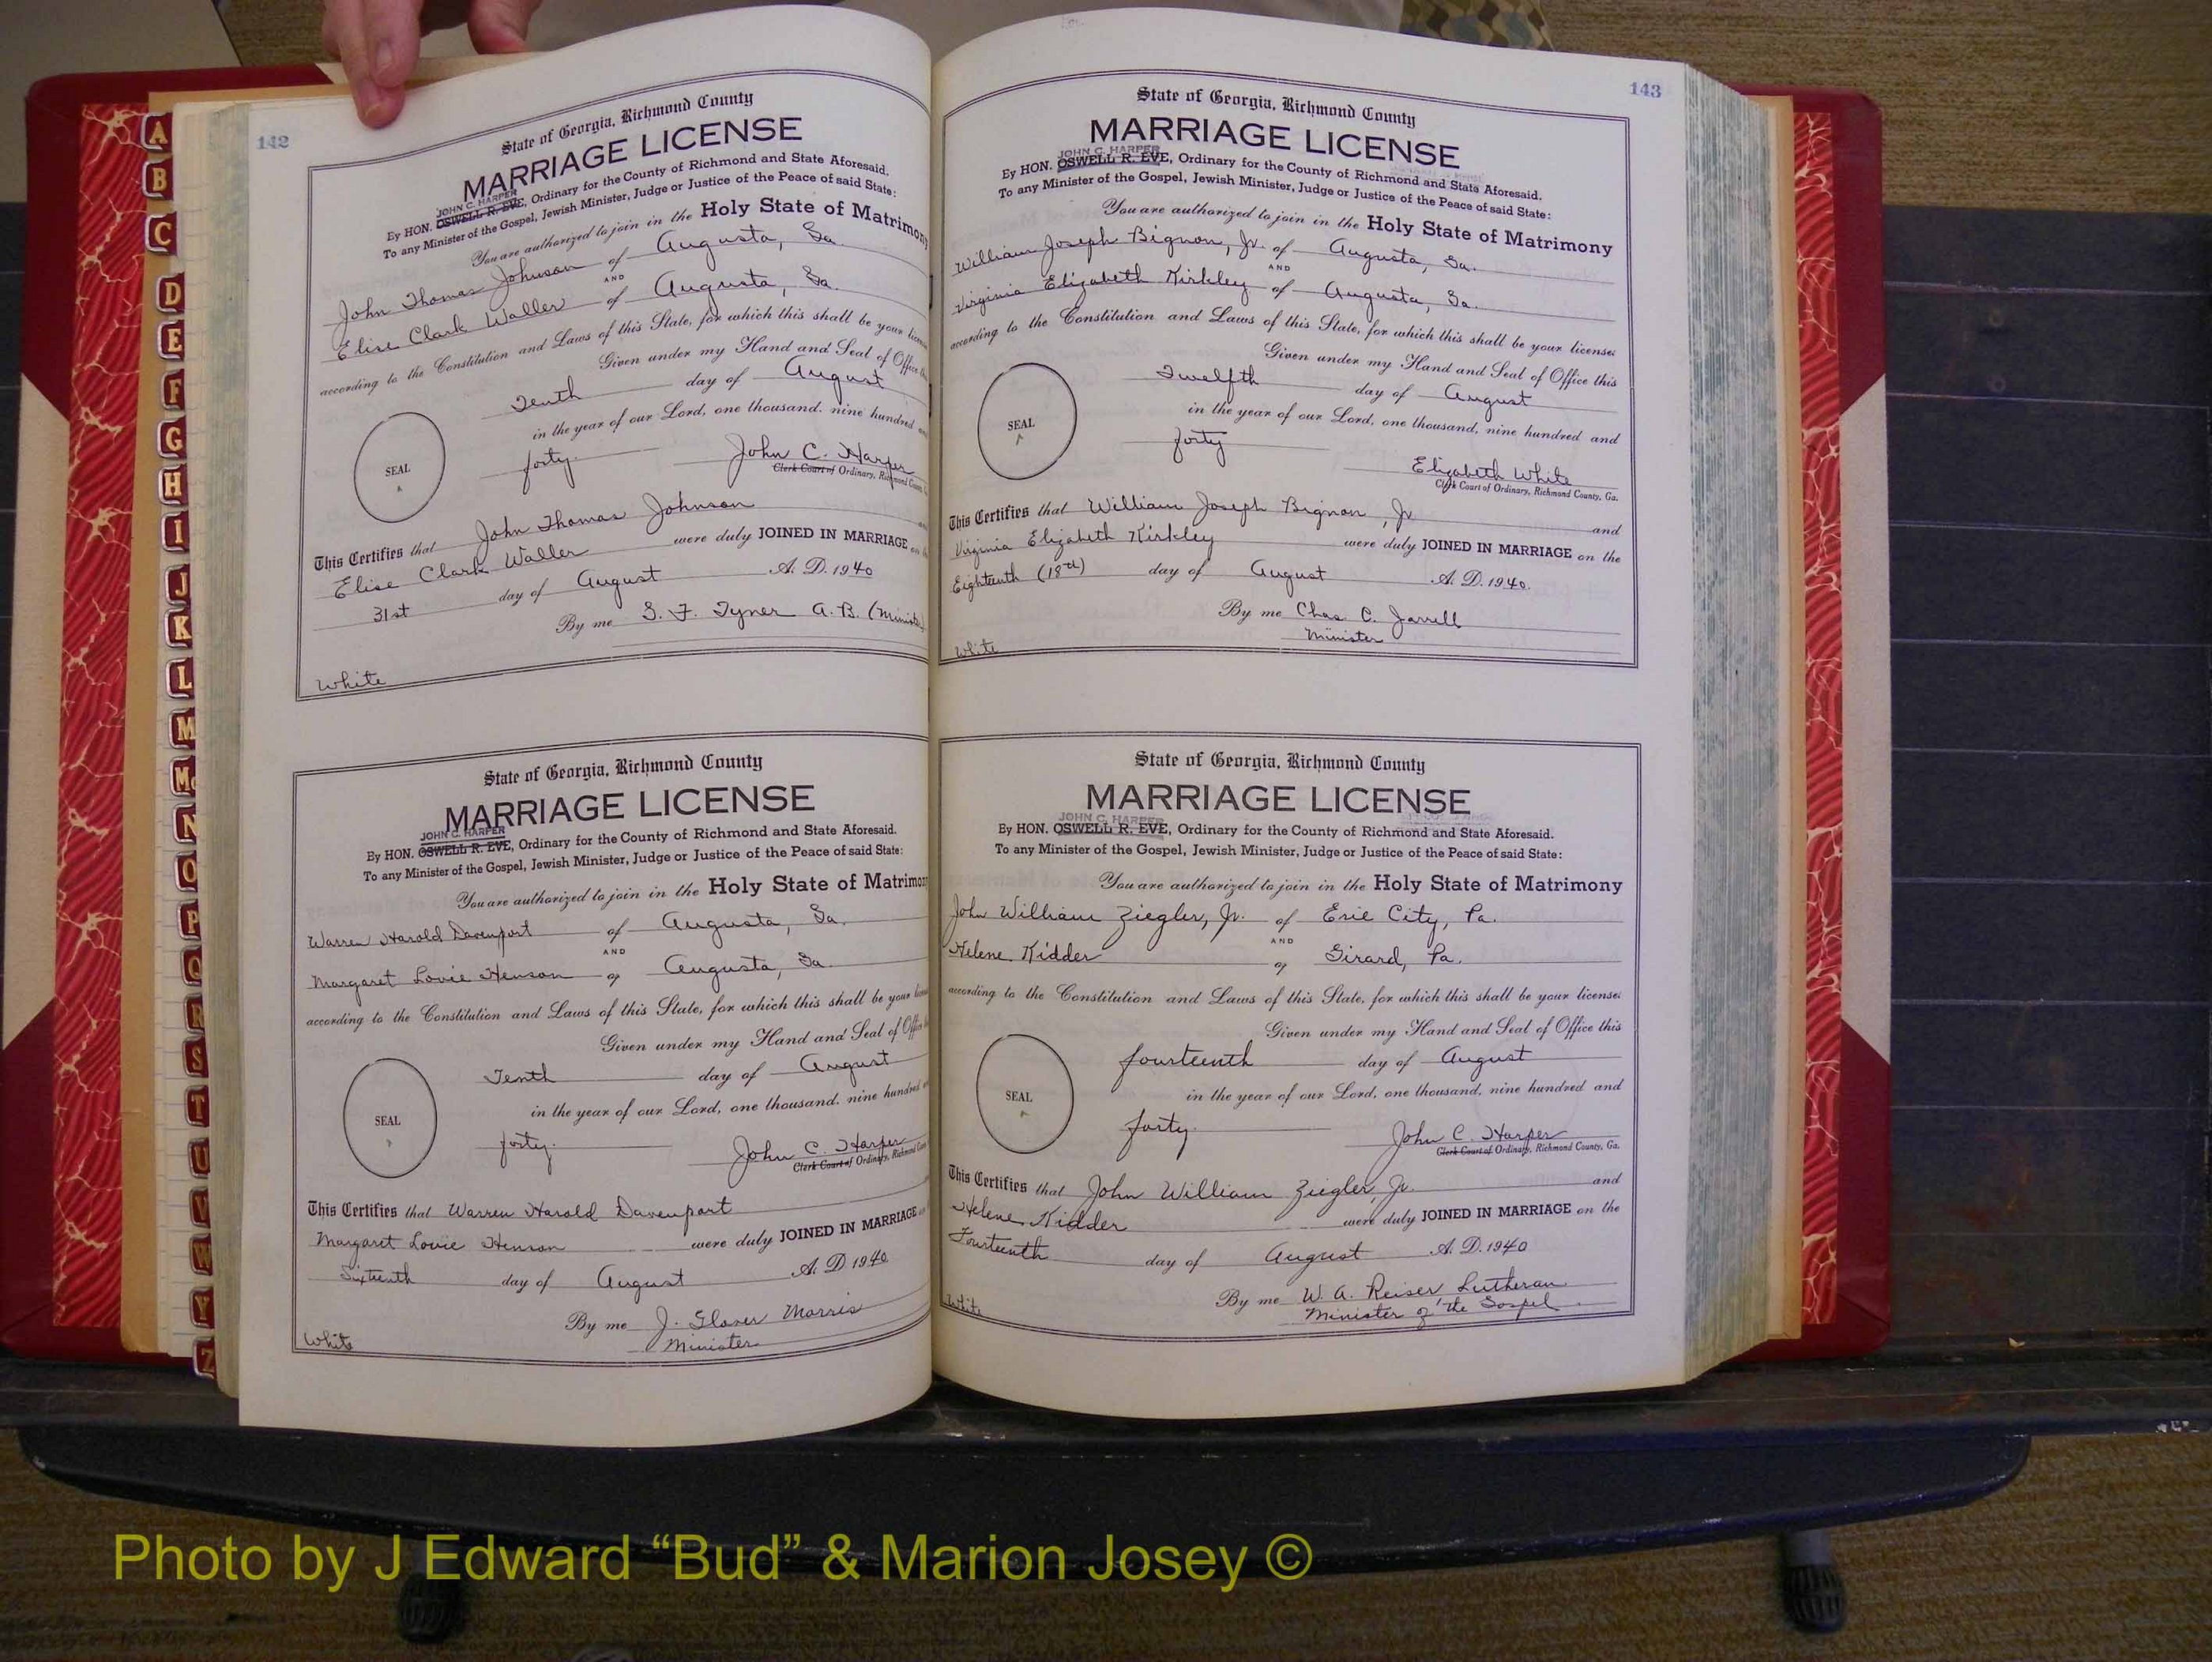 142
State of Georgia, Richmond County
MARRIAGE LICENSE
JOHN C. HARPER
By HON. OSWELL R. EVE, Ordinary for the County of Richmond and State Aforesaid.
To any Minister of the Gospel, Jewish Minister, Judge or Justice of the Peace of said State:
You are authorized to join in the Holy State of Matrimony
John Thomas Johnson of Augusta, Ga.
AND
Elise Clark Waller of Augusta, Ga.
according to the Constitution and Laws of this State, for which this shall be your licen
Given under my Hand and Seal of Office th
Tenth day of August
in the year of our Lord, one thousand, nine hundred an
SEAL
forty.
John C. Harper
Clerk Court of Ordinary, Richmond County, G
This Certifies that John Thomas Johnson
Elise Clark Waller were duly JOINED IN MARRIAGE on
31st day of August A. D. 1940
By me S. F. Tyner A. B. (Minister)
White
State of Georgia, Richmond County
MARRIAGE LICENSE
JOHN C. HARPER
By HON. OSWELL R. EVE, Ordinary for the County of Richmond and State Aforesaid.
To any Minister of the Gospel, Jewish Minister, Judge or Justice of the Peace of said State:
You are authorized to join in the Holy State of Matrimon
Warren Harold Davenport of Augusta, Ga.
AND
Margaret Lovie Henson of Augusta, Ga.
according to the Constitution and Laws of this State, for which this shall be your licen
Given under my Hand and Seal of Office
Tenth day of August
in the year of our Lord, one thousand, nine hundred
SEAL
forty.
John C. Harper
Clerk Court of Ordinary, Richmond County
This Certifies that Warren Harold Davenport
Margaret Lovie Henson were duly JOINED IN MARRIAGE
Sixteenth day of August A. D. 1940
By me J. Glover Morris
Minister
White
143
State of Georgia, Richmond County
MARRIAGE LICENSE
JOHN C. HARPER
By HON. OSWELL R. EVE, Ordinary for the County of Richmond and State Aforesaid.
To any Minister of the Gospel, Jewish Minister, Judge or Justice of the Peace of said State:
You are authorized to join in the Holy State of Matrimony
William Joseph Bignon, Jr. of Augusta, Ga.
AND
Virginia Elizabeth Kirkley of Augusta, Ga.
according to the Constitution and Laws of this State, for which this shall be your license.
Given under my Hand and Seal of Office this
Twelfth day of August
in the year of our Lord, one thousand, nine hundred and
SEAL
forty
Elizabeth White
Clerk Court of Ordinary, Richmond County, Ga.
This Certifies that William Joseph Bignon, Jr and
Virginia Elizabeth Kirkley were duly JOINED IN MARRIAGE on the
Eighteenth (18th) day of August A. D. 1940.
By me Chas C. Jarrell
Minister
White
State of Georgia, Richmond County
MARRIAGE LICENSE
JOHN C. HARPER
By HON. OSWELL R. EVE, Ordinary for the County of Richmond and State Aforesaid.
To any Minister of the Gospel, Jewish Minister, Judge or Justice of the Peace of said State:
You are authorized to join in the Holy State of Matrimony
John William Ziegler, Jr. of Erie City, Pa.
AND
Helene Kidder of Girard, Pa.
according to the Constitution and Laws of this State, for which this shall be your license.
Given under my Hand and Seal of Office this
fourteenth day of August
in the year of our Lord, one thousand, nine hundred and
SEAL
forty.
John C. Harper
Clerk Court of Ordinary, Richmond County, Ga.
This Certifies that John William Ziegler, Jr. and
Helene Kidder were duly JOINED IN MARRIAGE on the
Fourteenth day of August A. D. 1940
By me W. A. Reiser Lutheran
Minister of the Gospel
White
A
B
C
D
E
F
G
H
I
J
K
L
M
Mc
N
O
P
Q
R
S
T
U
V
W
Y
Z
Photo by J Edward “Bud” & Marion Josey ©